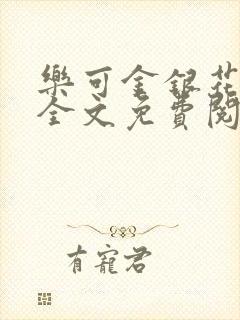 樂可金銀花
全文免費閱
有寵君